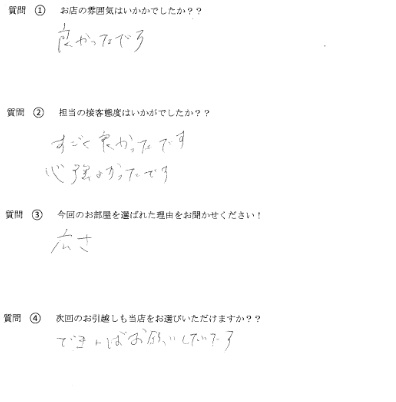 質問 ① お店の雰囲気はいかかでしたか？？
良かったです
質問 ② 担当の接客態度はいかがでしたか？？
すごく良かったです
心強かったです
質問 ③ 今回のお部屋を選ばれた理由をお聞かせください！
広さ
質問 ④ 次回のお引越しも当店をお選びいただけますか？？
できればお願いしたいです